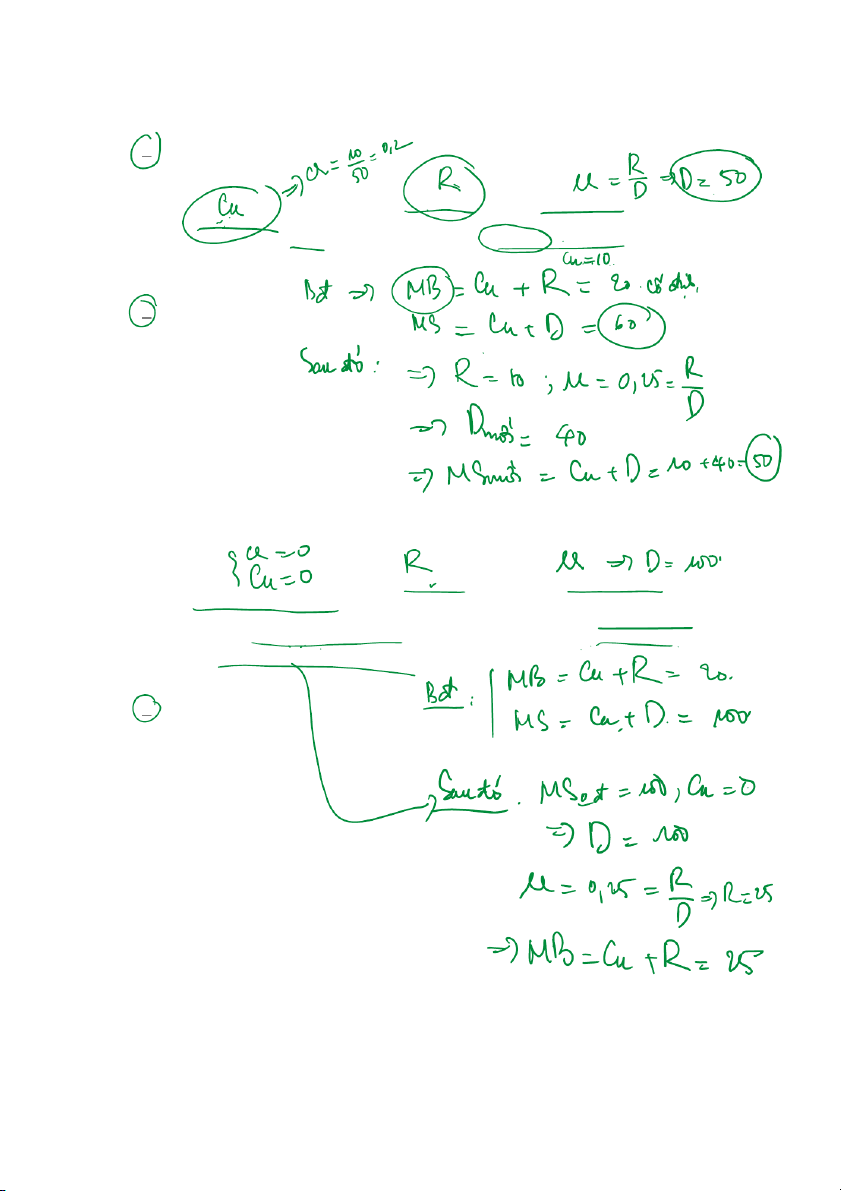 Cu ⇒ cu = 10/50 = 0,2
R
M = R/D ⇒ D = 50
Cu = 10.
Bđ ⇒ MB = Cu + R = 20 cố định.
MS = Cu + D = 60
Sau đó: ⇒ R = 10 ; M = 0,25 = R/D
⇒ Dmới = 40
⇒ MSmới = Cu + D = 10 + 40 = 50
{ cu = 0
Cu = 0
R
M ⇒ D = 100.
Bđ: MB = Cu + R = 20.
MS = Cu + D = 100
Sau đó. MS = 100, Cu = 0
⇒ D = 100
M = 0,25 = R/D ⇒ R = 25
⇒ MB = Cu + R = 25